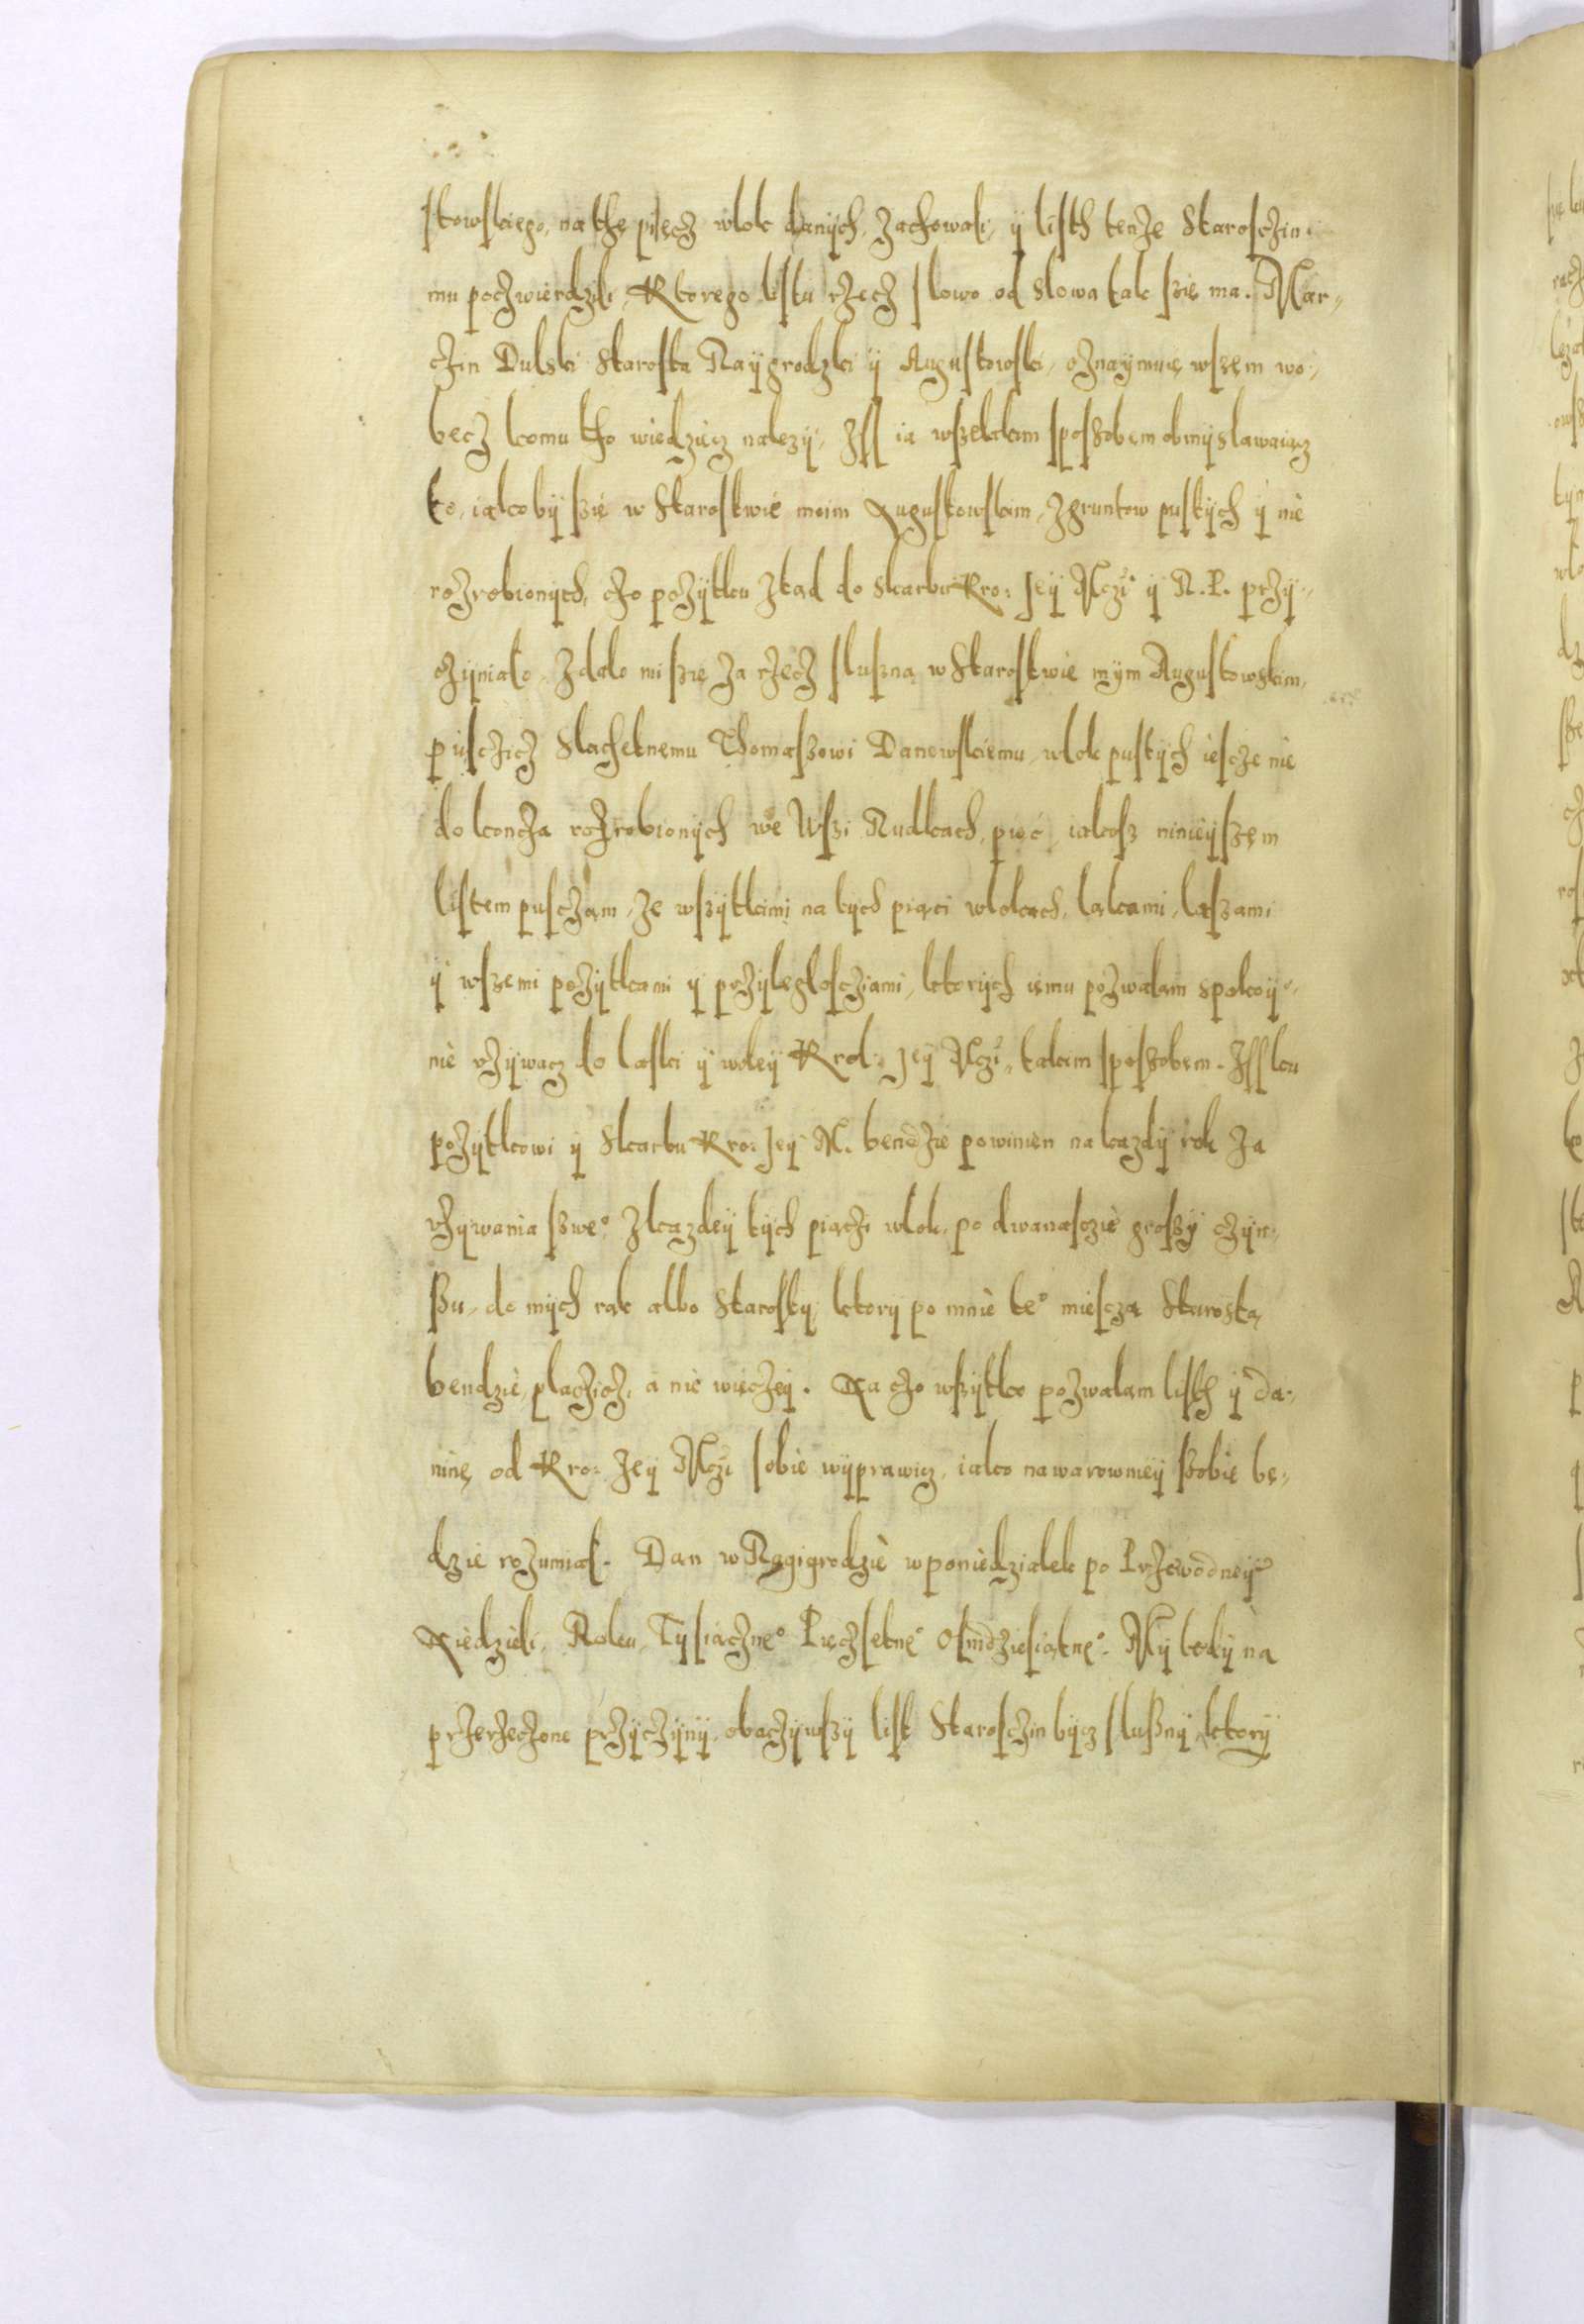 stowskiego, na thę pięcz wlok danÿch, zachowali, ÿ listh tenże Starosczin
mu poczwierdzili, Ktorego listu rzecz slowo od slowa tak szię ma. Mar„
czin Dulski Starosta Raÿgrodzki ÿ Augustowski, oznaÿmuię wszem wo„
becz komu tho wiedziecz nalezÿ, Iss ia wszelakim sposzobem obmÿslawaiącz
to, iakobÿ szię w Starostwie moim Augustowskim, z gruntow pustÿch ÿ nie
rozrobionÿch, czo pożÿtku ztąd do skarbu Kro: Jeÿ Mczi ÿ R. P. przÿ„
czÿnialo, Zdalo mi szię za rzecz sluszną w Starostwie mÿm Augustowskim,
pusczicz Slachetnemu Thomaszowi Danowskiemu, wlok pustÿch iescze nie
do koncza rozrobionÿch we Wszi Rudkach, pięć, iakosz ninieÿszem
listem pusczam, ze wszÿtkimi na tÿch piąci wlokach, ląkami, laszami
ÿ wszemi pożÿtkami ÿ przÿleglosciami, ktorÿch iemu pozwalam spokoÿ„
nie vżÿwacz do laski ÿ woleÿ Krol: Jeÿ Mczi, takim sposzobem. Iss ku
pożÿtkowi ÿ Skarbu Kro: Jeÿ M. bendzie powinien na kazdÿ rok za
vżÿwania szweº z kazdeÿ tÿch piączi wlok, po dwanascie groszÿ czÿn„
szu, do mÿch rąk albo Starostÿ, ktorÿ po mnie teº miescza Starostą
bendzie, placzicz, a nie wieczeÿ. Na czo wszÿtko pozwalam listh ÿ da„
ninę od Kro: Jeÿ Mczi sobie wÿprawicz, iako nawarownieÿ szobie bę„
dzie rozumial. Dan w Ragigrodzie w poniedzialek po Przewodneÿ
Niedzieli, Roku, Tÿsiącznęº Pięczsetnęº Osmdziesiątnęº. Mÿ tedÿ na
przerzeczone przÿczÿnÿ, obaczÿwszÿ list Starosczin bÿcz slusznÿ, ktorÿ